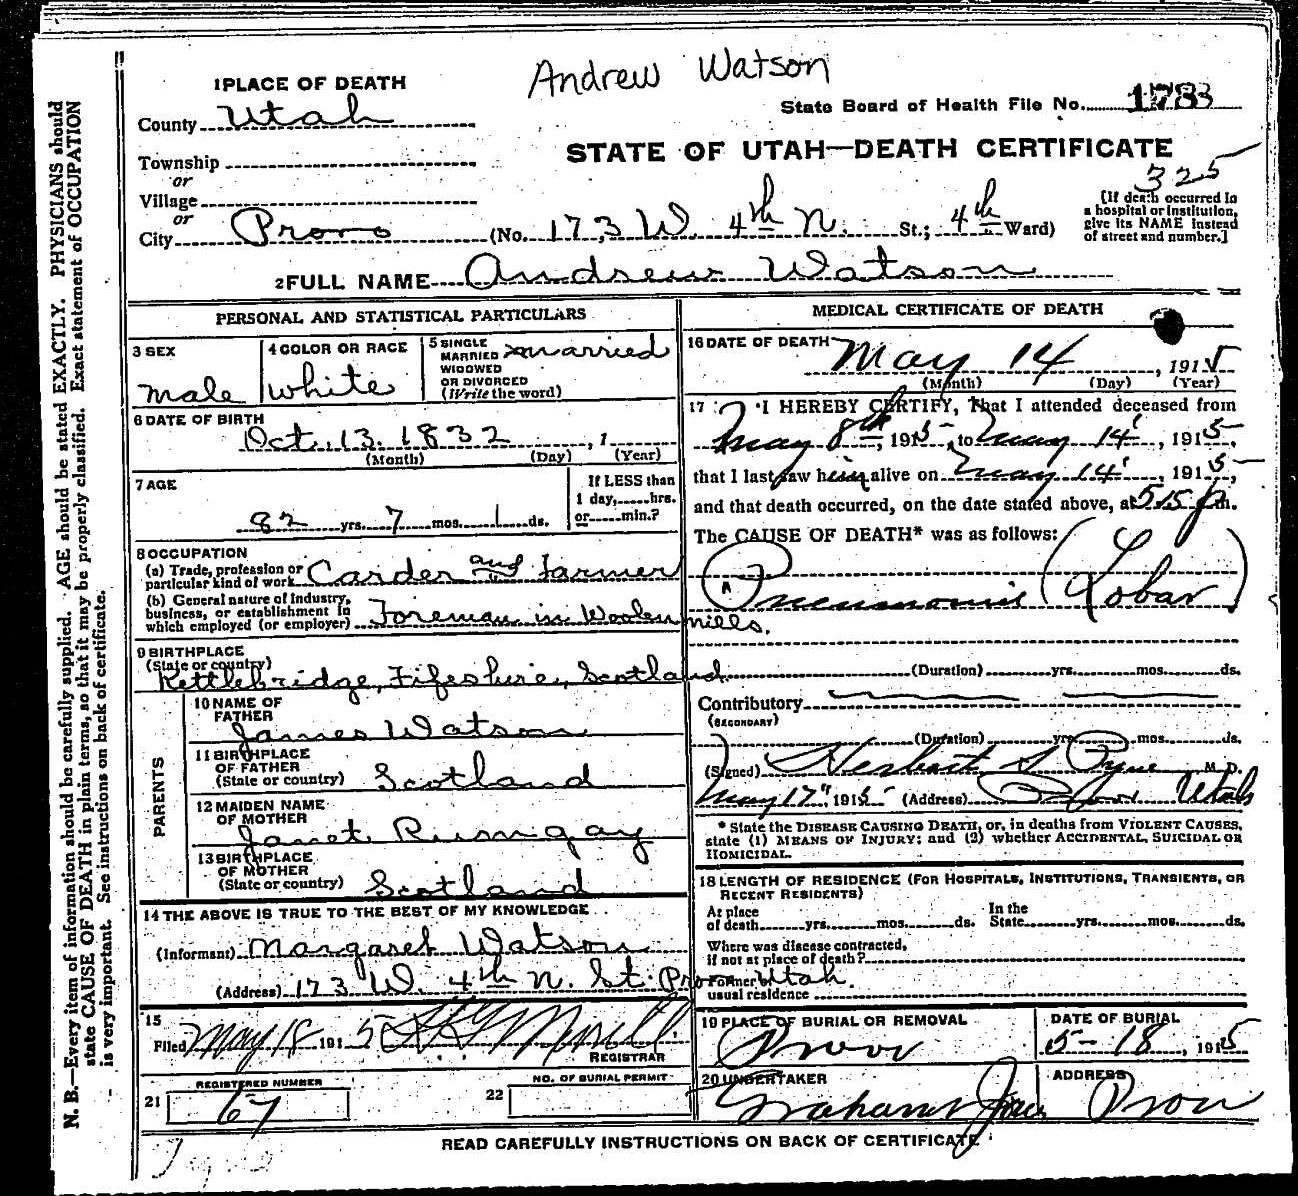 Andrew Watson
1 PLACE OF DEATH
State Board of Health File No. 1783
County Utah
STATE OF UTAH—DEATH CERTIFICATE
325
Township
or
Village
or
City Provo (No. 173 W. 4th N. St.; 4th Ward)
[If death occurred in
a hospital or institution,
give its NAME instead
of street and number.]
2 FULL NAME Andrew Watson
PERSONAL AND STATISTICAL PARTICULARS
3 SEX
male
4 COLOR OR RACE
white
5 SINGLE
MARRIED married
WIDOWED
OR DIVORCED
(Write the word)
6 DATE OF BIRTH
Oct. 13. 1832, 1
(Month) (Day) (Year)
7 AGE
82 yrs. 7 mos. 1 ds.
If LESS than
1 day, hrs.
or min.?
8 OCCUPATION
(a) Trade, profession or
particular kind of work Carder and Farmer
(b) General nature of industry,
business, or establishment in
which employed (or employer) Foreman in Woolen mills.
9 BIRTHPLACE
(State or country)
Kettlebridge, Fifeshire, Scotland.
PARENTS
10 NAME OF
FATHER
James Watson
11 BIRTHPLACE
OF FATHER
(State or country) Scotland
12 MAIDEN NAME
OF MOTHER
Janet Rumgay
13 BIRTHPLACE
OF MOTHER
(State or country) Scotland
14 THE ABOVE IS TRUE TO THE BEST OF MY KNOWLEDGE
(Informant) Margaret Watson
(Address) 173 W. 4th N. St. Provo Utah.
15
Filed May 18 1915 Merrill
REGISTRAR
21 REGISTERED NUMBER
67
22 NO. OF BURIAL PERMIT
MEDICAL CERTIFICATE OF DEATH
16 DATE OF DEATH
May 14, 1915
(Month) (Day) (Year)
17 I HEREBY CERTIFY, That I attended deceased from
May 8th, 1915, to May 14, 1915,
that I last saw him alive on May 14, 1915,
and that death occurred, on the date stated above, at 5.15 p m.
The CAUSE OF DEATH* was as follows:
Pneumonia (Lobar)
(Duration) yrs. mos. ds.
Contributory
(SECONDARY)
(Duration) yrs. mos. ds.
(Signed) Herbert S Pyne M. D.
May 17" 1915 (Address) Provo Utah
* State the DISEASE CAUSING DEATH, or, in deaths from VIOLENT CAUSES,
state (1) MEANS OF INJURY; and (2) whether ACCIDENTAL, SUICIDAL OR
HOMICIDAL.
18 LENGTH OF RESIDENCE (FOR HOSPITALS, INSTITUTIONS, TRANSIENTS, OR
RECENT RESIDENTS)
At place
of death yrs. mos. ds.
In the
State yrs. mos. ds.
Where was disease contracted,
if not at place of death?
Former or
usual residence
19 PLACE OF BURIAL OR REMOVAL
Provo
DATE OF BURIAL
5-18, 1915
20 UNDERTAKER
ADDRESS
Provo
READ CAREFULLY INSTRUCTIONS ON BACK OF CERTIFICATE
N. B.—Every item of information should be carefully supplied. AGE should be stated EXACTLY. PHYSICIANS should
state CAUSE OF DEATH in plain terms, so that it may be properly classified. Exact statement of OCCUPATION
is very important. See instructions on back of certificate.